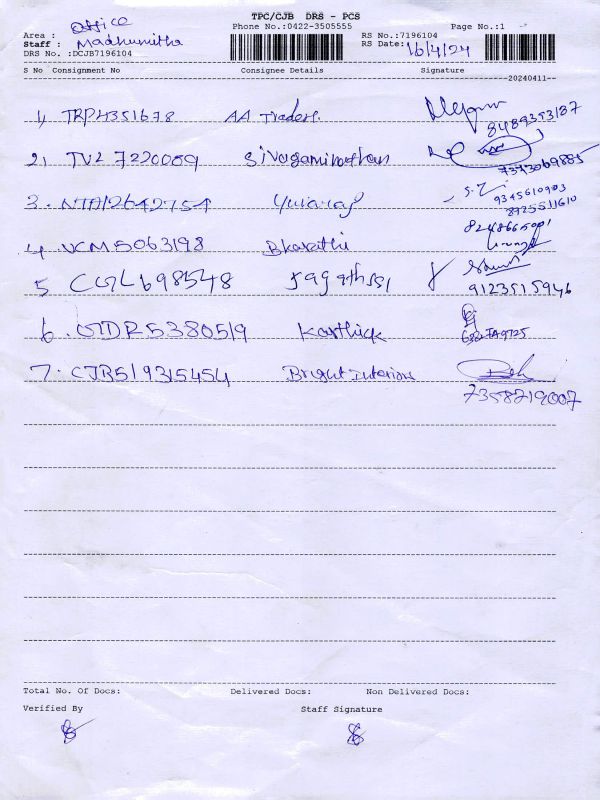 TPC/CJB DRS - PCS
Office
Area : Phone No.:0422-3505555 Page No.:1
Staff : Madhumitha RS No.:7196104
DRS No. :DCJB7196104 RS Date: 16/4/24
S No Consignment No Consignee Details Signature
20240411
1, TRP4351678 AA Traders.
8489353187
2, TVL7220059 Sivagaminathan
7373069885
3. Yuvaraj 9345610903
8925511610
4. VCM5063198 Bharathi
5 CGL698548 Jagathsri
9123515946
6. Karthick
7. CJB519315454 Bright Interiors
7358219007
Total No. Of Docs: Delivered Docs: Non Delivered Docs:
Verified By Staff Signature